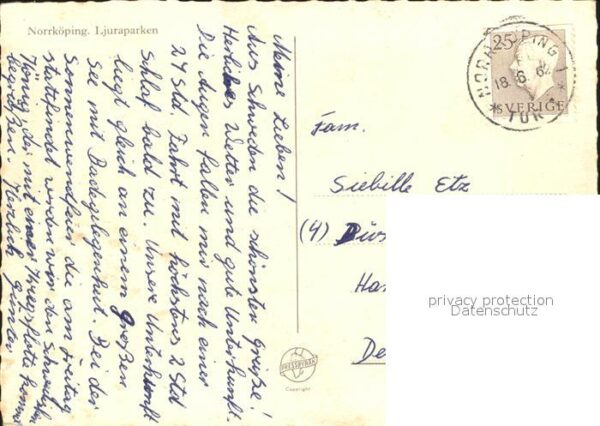 Norrköping. Ljuraparken
Meine Lieben!
Aus Schweden die schönsten Grüße!
Herrliches Wetter und gute Unterkunft.
Die Augen fallen mir nach einer
24 Std. Fahrt mit höchstens 2 Std
Schlaf bald zu. Unsere Unterkunft
liegt gleich an einem großen
See mit Badegelegenheit. Bei der
Sonnenwendfeier die am Freitag
stattfindet werden wir den Schwedischen
König, der mit einer
25
SVERIGE
NORRKÖPING
18.6.62
TUR
Fam.
Siebille Etz
(4)
privacy protection
Datenschutz
De
PRESSBYRÅN
Copyright